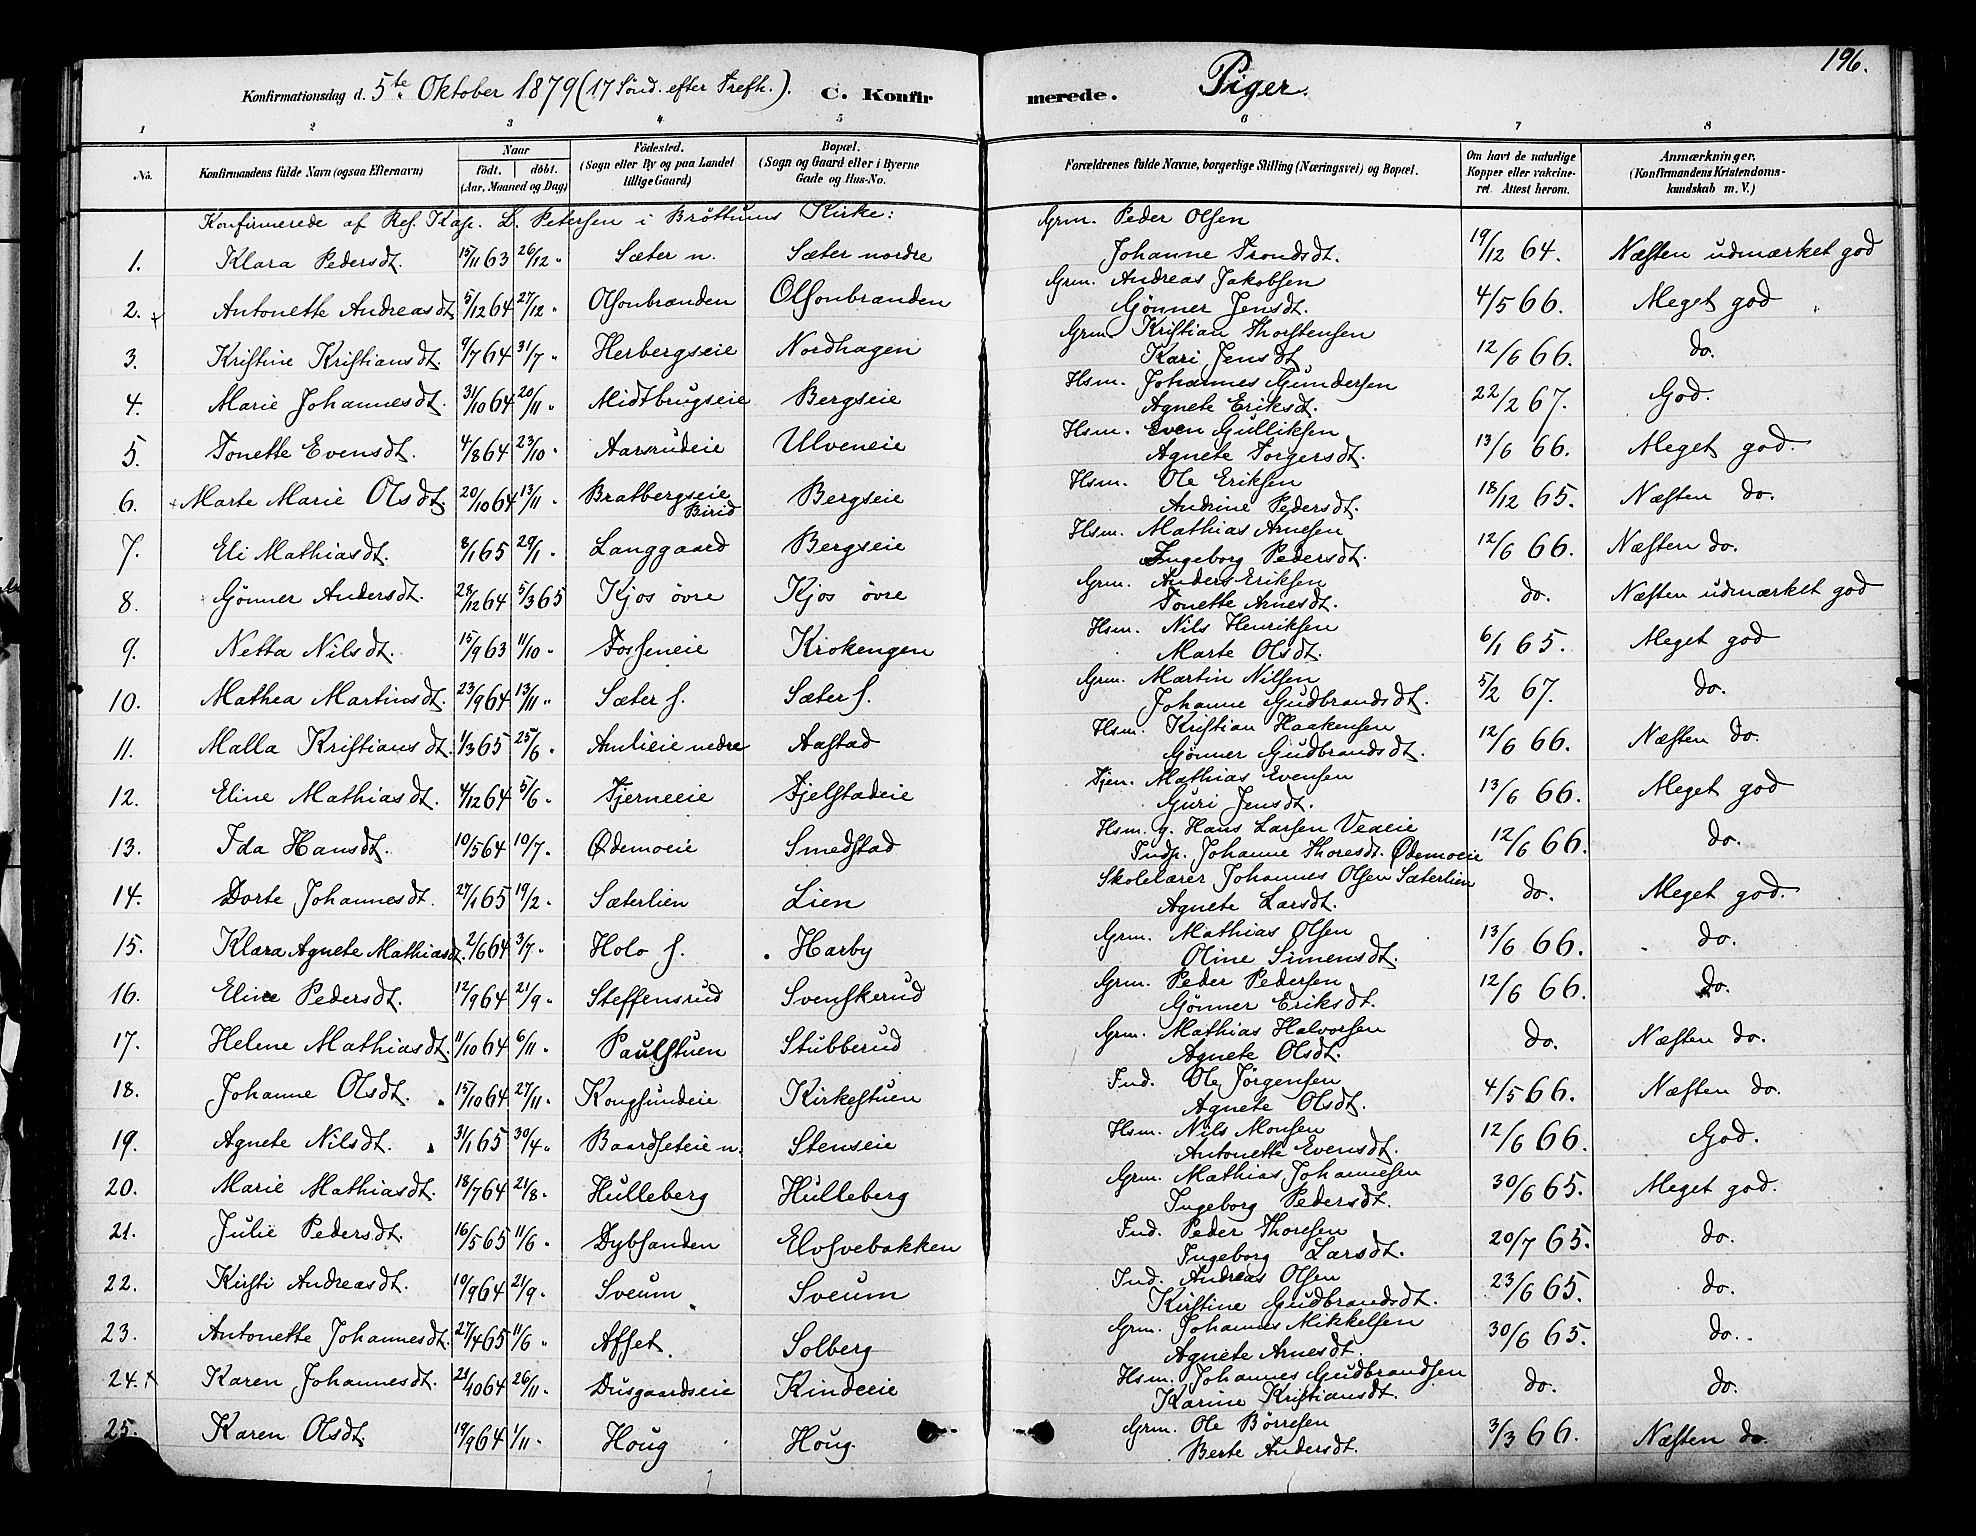 196.
Konfirmationsdag d. 5te Oktober 1879 (17 Sönd. efter Trefh.). C. Konfirmerede. Piger.
1 2 3 4 5 6 7 8
No. Konfirmandens fulde Navn (ogsaa Efternavn) Naar födt. döbt. (Aar, Maaned og Dag) Födested. (Sogn eller By og paa Landet tillige Gaard) Bopæl. (Sogn og Gaard eller i Byerne Gade og Hus-No. Forældrenes fulde Navne, borgerlige Stilling (Næringsvei) og Bopæl. Om havt de naturlige Kopper eller vakcineret. Attest herom. Anmærkninger. (Konfirmandens Kristendomskundskab m. V.)
Konfirmerede af Res. Kap. L. Petersen i Bröttums Kirke:
1. Klara Pedersdt. 15/11 63 26/12 " Sæter n. Sæter nordre Grm. Peder Olsen
Johanne Trondsdt. 19/12 64. Næsten udmærket god
2. Antonette Andreasdt. 5/12 64 27/12 " Olsonbrænden Olsonbrænden Grm. Andreas Jakobsen
Gönner Jensdt. 4/5 66. Meget god
3. Kristine Kristiansdt. 9/7 64 31/7 " Herbergseie Nordhagen Grm. Kristian Thorstensen
Kari Jensdt. 12/6 66. do.
4. Marie Johannesdt. 31/10 64 20/11 " Midtbrugseie Bergseie Hsm. Johannes Gundersen
Agnete Eriksdt. 22/2 67. God.
5. Tonette Evensdt. 4/8 64 23/10 " Aarsrudeie Ulveneie Hsm. Even Gulliksen
Agnete Torgersdt. 13/6 66. Meget god.
6. Marte Marie Olsdt. 20/10 64 13/11 " Bratbergseie Birid Bergseie Hsm. Ole Eriksen
Andrine Pedersdt. 18/12 65. Næsten do.
7. Eli Mathiasdt. 8/1 65 29/1 " Langgaard Bergseie Hsm. Mathias Arnesen
Ingeborg Pedersdt. 12/6 66. Næsten do.
8. Gönner Andersdt. 28/12 64 5/3 65 Kjos övre Kjos övre Grm. Anders Eriksen
Tonette Arnesdt. do. Næsten udmærket god
9. Netta Nilsdt. 15/9 63 11/10 " Fosseneie Krokengen Hsm. Nils Henriksen
Marte Olsdt. 6/1 65. Meget god
10. Mathea Martinsdt. 23/9 64 13/11 " Sæter s. Sæter s. Grm. Martin Nilsen
Johanne Gudbrandsdt. 5/2 67. do.
11. Malla Kristiansdt. 1/3 65 25/6 " Amlieie nedre Aastad Hsm. Kristian Haakensen
Gönner Gudbrandsdt. 12/6 66. Næsten do.
12. Eline Mathiasdt. 4/12 64 5/6 " Tjerneeie Fjelstadeie Tjen. Mathias Evensen
Guri Jensdt. 13/6 66. Meget god
13. Ida Hansdt. 10/5 64 10/7 " Ødemoeie Smedstad Hsm. g. Hans Larsen Veaeie
Indp. Johanne Thoresdt. Ødemoeie 12/6 66. do.
14. Dorte Johannesdt. 27/1 65 19/2 " Sæterlien Lien Skolelærer Johannes Olsen Sæterlien
Agnete Larsdt. do. Meget god.
15. Klara Agnete Mathiasdt. 2/6 64 3/7 " Holo s. Harby Grm. Mathias Olsen
Oline Simensdt. 13/6 66. do.
16. Eline Pedersdt. 12/9 64 21/9 " Steffensrud Svenskerud Grm. Peder Pedersen
Gönner Eriksdt. 12/6 66. do.
17. Helene Mathiasdt. 11/10 64 6/11 " Paulstuen Stubberud Grm. Mathias Halvorsen
Agnete Olsdt. do. Næsten do.
18. Johanne Olsdt. 15/10 64 27/11 " Kongsundeie Kirkestuen Ind. Ole Jörgensen
Agnete Olsdt. 4/5 66. Næsten do.
19. Agnete Nilsdt. 31/1 65 30/4 " Baardseteie n. Stenseie Hsm. Nils Monsen
Antonette Evensdt. 12/6 66. God.
20. Marie Mathiasdt. 18/7 64 21/8 " Hulleberg Hulleberg Grm. Mathias Johannesen
Ingeborg Pedersdt. 30/6 65. Meget god.
21. Julie Pedersdt. 16/5 65 11/6 " Dybsanden Elvsvebakken Ind. Peder Thoresen
Ingeborg Larsdt. 20/7 65. do.
22. Kirsti Andreasdt. 10/9 64 21/9 " Sveum Sveum Ind. Andreas Olsen
Kirstine Gudbrandsdt. 23/6 65. do.
23. Antonette Johannesdt. 27/4 65 11/6 " Afset. Solberg Grm. Johannes Mikkelsen
Agnete Arnesdt. 30/6 65. do.
24. Karen Johannesdt. 21/10 64 26/11 " Dusgaardseie Kindeeie Hsm. Johannes Gudbrandsen
Karine Kristiansdt. do. do.
25. Karen Olsdt. 19/9 64 1/11 " Houg Houg. Grm. Ole Börresen
Berte Andersdt. 3/3 66. Næsten do.